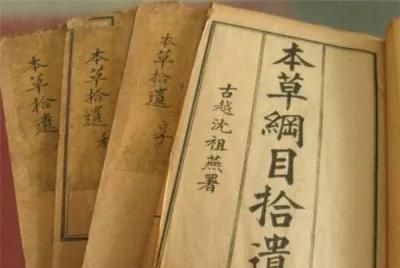 本草拾遺
本草拾遺 利
本草拾遺 亨
本草綱目拾遺
古越沈祖燕署